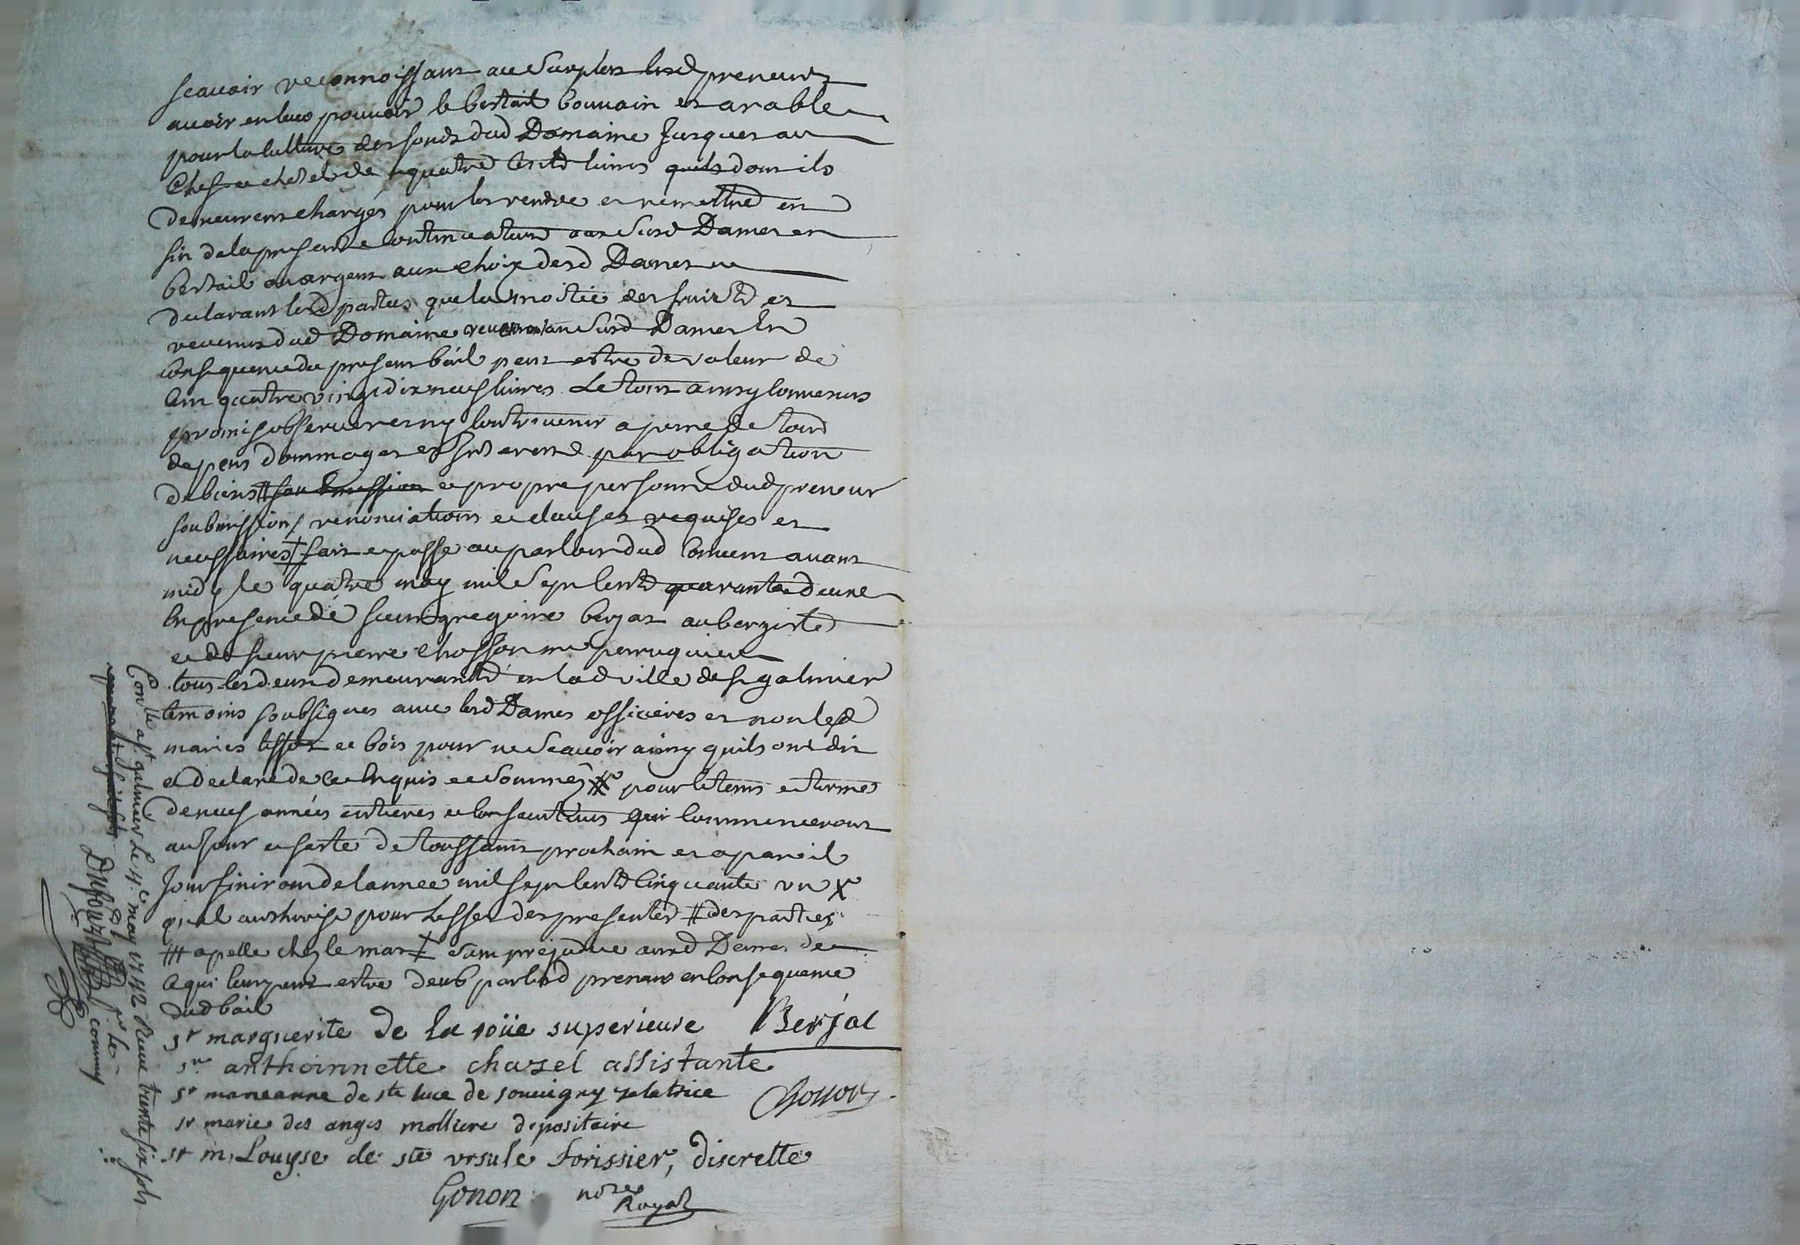 scavoir reconnoissant au surplus lesd preneurs
avoir en leur pouvoir le bestail bouvain et arable
pour la culture des fonds dud Domaine Jusques au
Chef et cheptel de quatre cents livres quils dont ils
demeurent chargés pour les rendre et remettre en
fin de la presente continuation aux susd Dames en
bestail ou argent aux choix desd Dames
declarant lesd parties que la moitié des fruicts et
revenus dud Domaine revenant au susd Dames En
Consequence du present bail peut estre de valeur de
Cent quatre vingt dix neuf livres Le tout ainsy convenus
promis observer et ny contrevenir a peine de tous
depens dommages et interests par obligation
de biens # soubmission et propre personne dud preneur
soubmissions renonciations et clauses requises et
necessaires † fait et passé au parloir dud Couvent avant
midy le quatre may mil sept cents quarante deux
En presence de sieur gregoire berjat aubergiste
et de sieur pierre chosson me perruquier
tous les deux demeurants en lad ville de St galmier
temoins soubsignes avec lesd Dames officieres et non lesd
maries et bois pour ne scavoir ainsy quils ont dit
et declaré de ce Enquis et sommés pour le tems et terme
de neuf années entieres et consecutives qui commenceront
au Jour et feste de toussaint prochain et a pareil
Jour finiront de lannee mil sept cents cinquante un X
quel authorise pour Leffet des presentes # des parties
# apelle chez le mar † sans prejudice ausd Dames de
ce qui leur peut estre deub par lesd prenans en consequence
dud bail
sr marguerite de la roüe superieure Berjat
sr anthoinnette chazel assistante
sr marianne de ste luce de souvigny zelatrice Chosson
sr marie des anges molliere depositaire
sr m. Louyse de ste ursule forissier, discrette
Gonon notre Royal
Conllé a St galmier Le 4e may 1742 Receu trente six sols
pr le commy